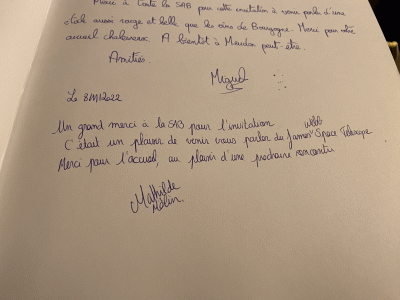 Merci à toute la SAB pour cette invitation à venir parler d'une
étoile aussi rouge et belle que les vins de Bourgogne. Merci pour votre
accueil chaleureux. A bientôt à Meudon peut-être.
Amitiés.
Miguel
Le 8/11/2022
Un grand merci à la SAB pour l'invitation
Webb
C'était un plaisir de venir vous parler du James Space Telescope
Merci pour l'accueil, au plaisir d'une prochaine rencontre
Mathilde